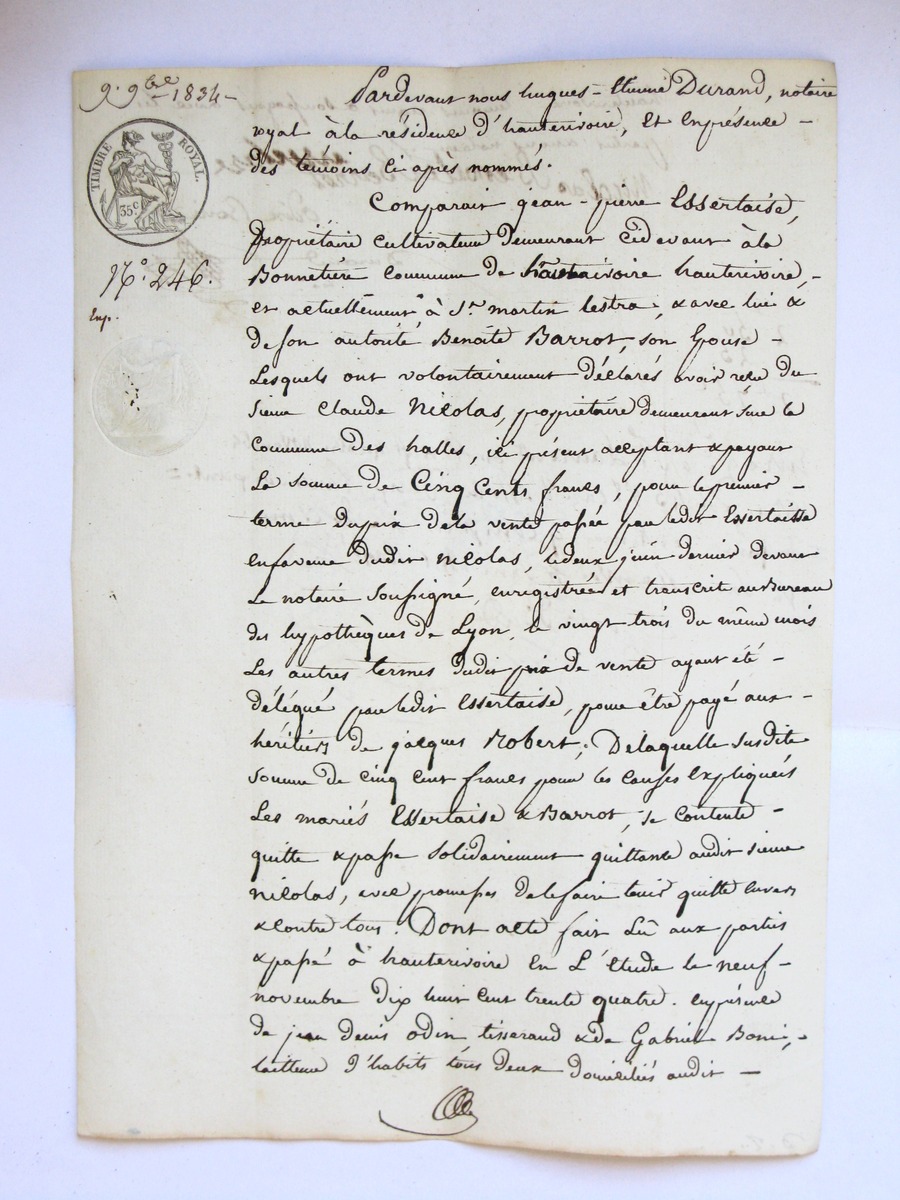 9. 9bre 1834 -
TIMBRE ROYAL.
35 c
N°. 246.
Exp.
Pardevant nous hugues - Etienne Durand, notaire
royal à la résidence d'hauterivoire, et enprésence -
des témoins ci après nommés.
Comparait jean - pierre Essertaise,
propriétaire cultivateur demeurant cidevant à la
Bonnetiere commune de hauterivoire,-
et actuellement à St. martin lestra; & avec lui &
de son autorité Benoite Barrot, son Epouse -
Lesquels ont volontairement déclarés avoir reçu du
sieur Claude Nicolas, propriétaire demeurant sur la
Commune des halles, ici présent acceptant & payant
La somme de Cinq Cents francs, pour le premier -
terme duprix dela vente passée par ledit Essertaise
enfaveur dudit Nicolas, ledeux juin dernier devant
Le notaire soussigné, enregistrée et transcrite au Bureau
des hypothèques de Lyon, le vingt trois du même mois
Les autres termes dudit prix de vente ayant été -
délégué par ledit Essertaise, pour être payé aux -
héritiers de jacques Robert; Delaquelle susdite
somme de cinq cent francs pour les causes expliqueés
Les mariés Essertaise & Barrot, se contente -
quitte & passe solidairement quittance audit sieur
Nicolas, avec promesses delefaire tenir quitte envers
& contre tous. Dont acte fait Lû aux parties
& passé à hauterivoire en L'étude le neuf -
novembre dix huit cent trente quatre. enprésence
de jean denis odin, tisserand & de Gabriel Boni,-
tailleur d'habits tous deux domiciliés audit -